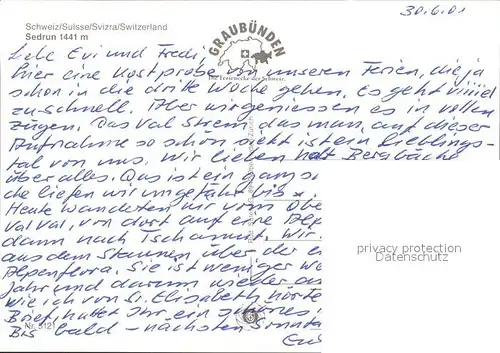 30.6.01
Schweiz/Suisse/Svizra/Switzerland
Sedrun 1441 m
GRAUBÜNDEN
Die Ferienecke der Schweiz.
Liebe Evi und Fredi,
hier eine Kostprobe von unseren Ferien, die ja
schon in die dritte Woche gehen. Es geht viiiiel
zu schnell. Aber wir geniessen es in vollen
Zügen. Das Val Strem das man auf dieser
Aufnahme so schön sieht ist ein Lieblings-
tal von uns. Wir lieben halt Bergbäche
über alles. Das ist ein ganz
che liefen wir ungefähr bis x.
Heute wanderten wir vom Obe
Val Val, von dort auf eine Alp
dann nach Tschamutt. Wir
aus dem Staunen über die
Alpenflora. Sie ist weniger
Jahr und darum wieder
wie ich von St. Elisabeth hörte
Brief, hattet Ihr ein schönes
Bis bald – nächsten Sonnta
privacy protection
DELCAMPE.NET
Nr. 5121